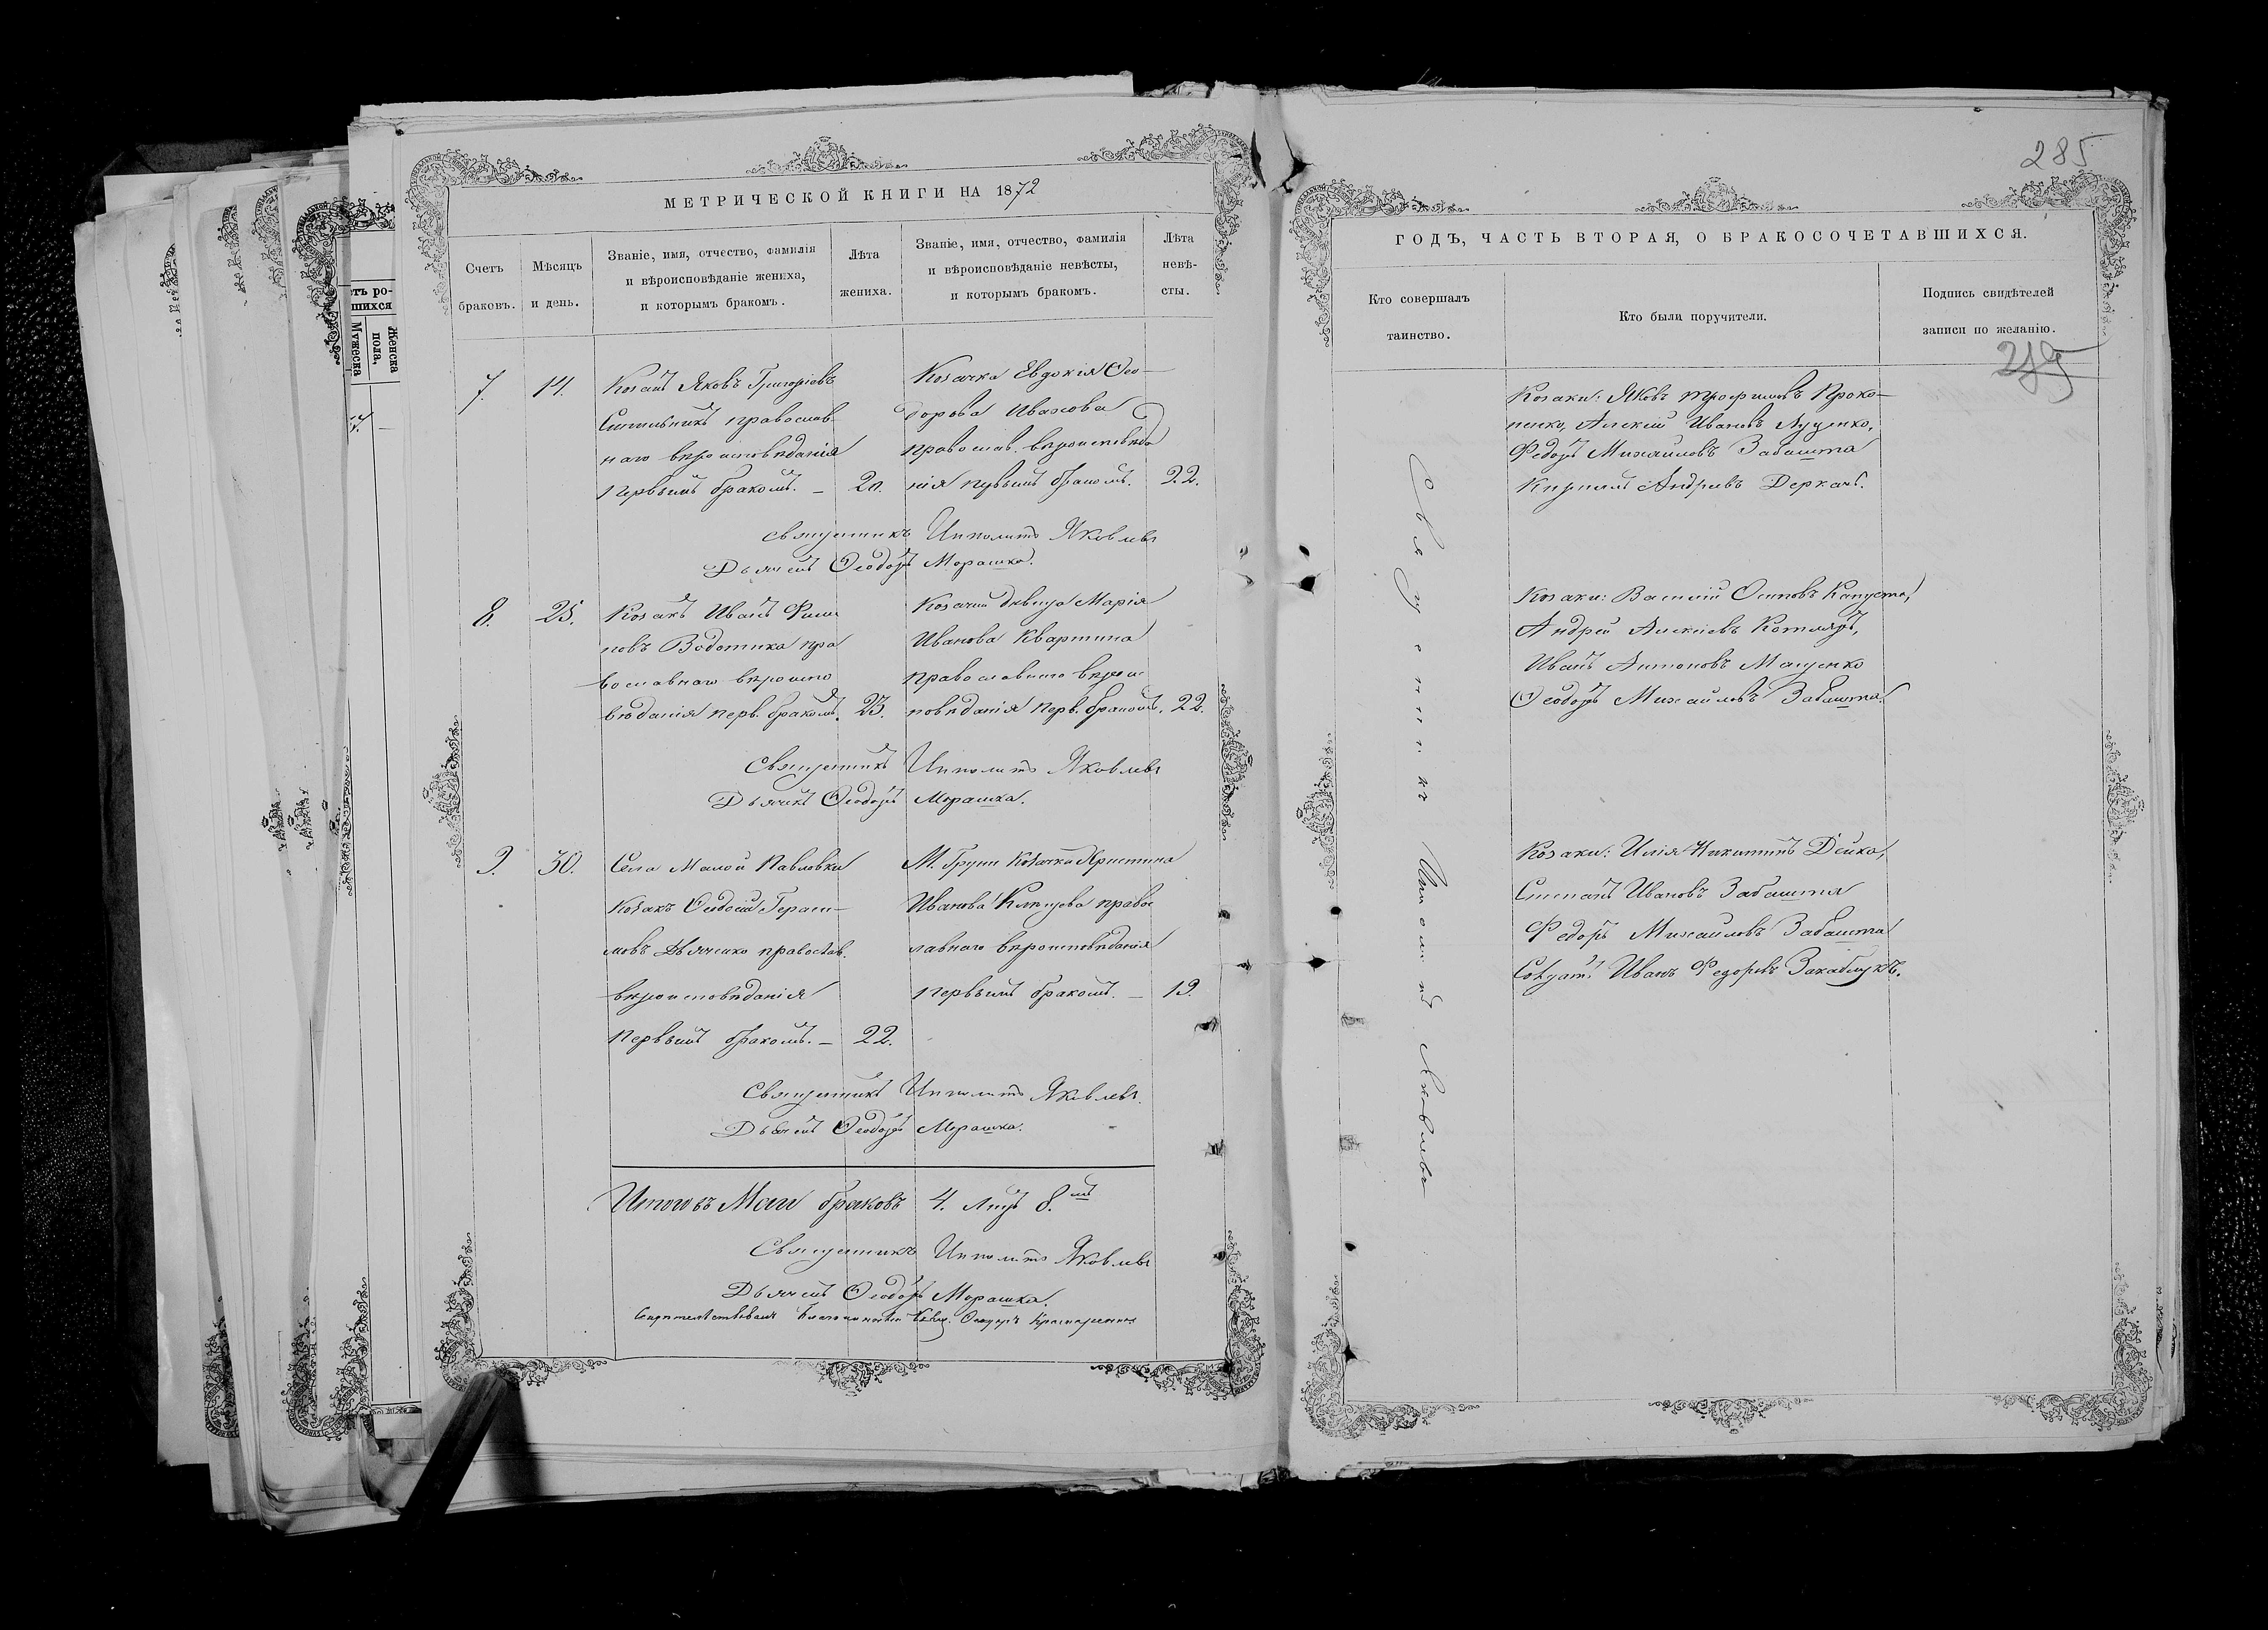 МЕТРИЧЕСКОЙ КНИГИ НА 1872
Счетъ браковъ.
Мѣсяцъ и день.
Званіе, имя, отчество, фамилія
и вѣроисповѣданіе жениха,
и которымъ бракомъ.
Лѣта жениха.
Званіе, имя, отчество, фамилія
и вѣроисповѣданіе невѣсты,
и которымъ бракомъ.
Лѣта невѣ-
сты.
7. 14.
Козакъ Яковъ Григоріевъ
православ-
наго вѣроисповѣданія
первымъ бракомъ. — 20.
Козачка Евдокія Ѳео-
дорова Ивахова
православ. вѣроисповѣда
нія первымъ бракомъ. 22.
Священникъ Ипполитъ Яковлевъ
Дьячекъ Ѳеодоръ Морашко.
8. 25.
Козакъ Иванъ Фили
повъ Водотика пра
вославнаго вѣроиспо
вѣданія перв. бракомъ. 23.
Козачья дѣвица Марія
Иванова Квартина
православнаго вѣроис
повѣданія перв. бракомъ. 22.
Священникъ Ипполитъ Яковлевъ
Дьячекъ Ѳеодоръ Морашка.
9. 30.
Села Малой Павловки
козакъ Ѳеодосій Гераси-
мовъ Дьяченко православ.
вѣроисповѣданія
первымъ бракомъ. — 22.
М. Груни козачка Христина
Иванова правос
лавнаго вѣроисповѣданія
первымъ бракомъ. — 19.
Священникъ Ипполитъ Яковлевъ.
Дьячекъ Ѳеодоръ Морашка.
Итого въ Маи браковъ 4. лицъ 8.мъ
Священникъ Ипполитъ Яковлевъ
Дьячекъ Ѳеодоръ Морашка.
285
ГОДЪ, ЧАСТЬ ВТОРАЯ, О БРАКОСОЧЕТАВШИХСЯ.
Кто совершалъ
таинство.
Кто были поручители.
Подпись свидѣтелей
записи по желанію.
Священникъ Ипполитъ Яковлевъ
Козаки: Яковъ Трофимовъ Проко-
пенко, Алексій Ивановъ Луценко,
Федоръ Михайловъ Забашта
Кирилъ Андреевъ Деркачъ.
Козаки: Василій Осиповъ Капуста,
Андрей Алексіевъ Котляръ,
Иванъ Антоновъ Маценко
Ѳеодоръ Михайловъ Забашта.
Козаки: Илія Никитинъ Дейка,
Степанъ Ивановъ Забашта
Федоръ Михайловъ Забашта
Солдатъ Иванъ Федоровъ Закаблукъ.